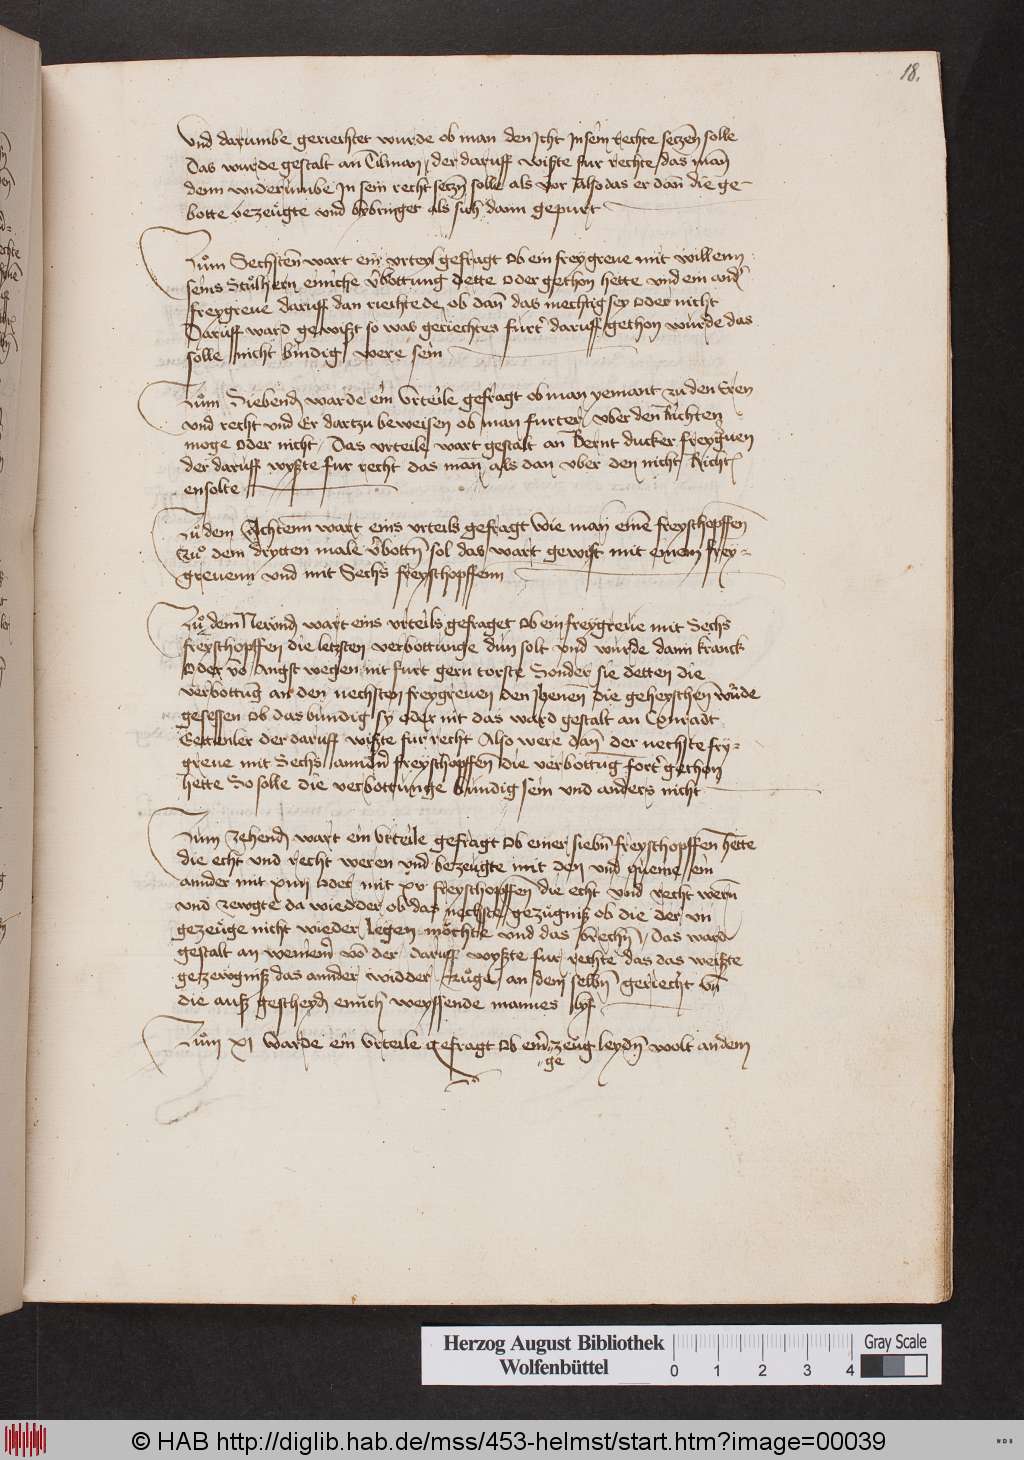 18.
vnd darumbe gerierhtet wurde ob man den Jcht Jn sein Rechte setzen solle
Das wurde gestalt an Tilman, der daruff wißte fur rechte, das man
denn widerumbe Jn sein recht setzn solle als vor Also das er dan die ge-
botte bezeugte vnd bybringet als sich dann gepurt
Zum Sechsten wart ein vrteyl gefragt Ob ein freygreue mit willenn
seins Stulhern eniche vbottung dette Oder gethon hette vnd ein and
freygreue daruff dan richte de, ob dan das mechtig sey Oder nicht
Daruff ward gewißt so was geriechtes furt daruff gethon wurde das
solle nicht bindig were sein
Zum Siebend warde ein Vrteile gefragt ob man yemant zu den Eren
vnd recht vnd Er dartzu beweisen ob man furter vber den Richten
moge Oder nicht, Das vrteile wart gestalt an Bernt ducker freyguen
der daruff wyßte fur recht das man als dan vber den nicht Richt
ensolte
Zu dem Achtenn wart eins vrteils gefragt wie man eine freyschopffen
Zu dem drytten male vbottn sol das wart gewist mit einem frey-
greuenn vnd mit Sechs freyschopffenn
Zu dem Newnd wart eins vrteils gefraget Ob ein freygreue mit Sechs
freyschopffen die letzsten verbottunge dun solt vnd wurde dann kranck
Oder vo Angst wegen nit furt gern torste Sonder sie detten die
verbottug an den nechsten freygreuen den Jhenen die geheyschen wurde
gesessen Ob das bundig sy oder nit das ward gestalt an Conradt
der daruff wißte fur recht Also were dan der nechste fry-
greue mit Sechs annden freyschopffen die verbottug fort gethon
hette So solle die verbottunge bundig sein vnd anders nicht
Zum Zehend wart ein Vrteile gefragt Ob einer siebn freyschopffen hette
die echt vnd recht weren vnd bezeugte mit den vnd queme ein
annder mit xiiij Oder mit xv freyschopffen die echt vnd recht wern
vnd zewgte da wiedder ob das nechste gezugniß ob die der vn
gezeuge nicht wieder legen mochte vnd das brechn, Das ward
gestalt an vo der daruff wyßte fur rechte das das weißte
getzewgniß das annder widder Zuge an dem selbn geriecht vn
die auß gescheyd enuch weyssende mannes lyf
Zum xj warde ein Vrteile gefragt Ob einr zeug leydn wolt an dem
ge
Herzog August Bibliothek
Wolfenbüttel
0 1 2 3 4
Gray Scale
© HAB http://diglib.hab.de/mss/453-helmst/start.htm?image=00039